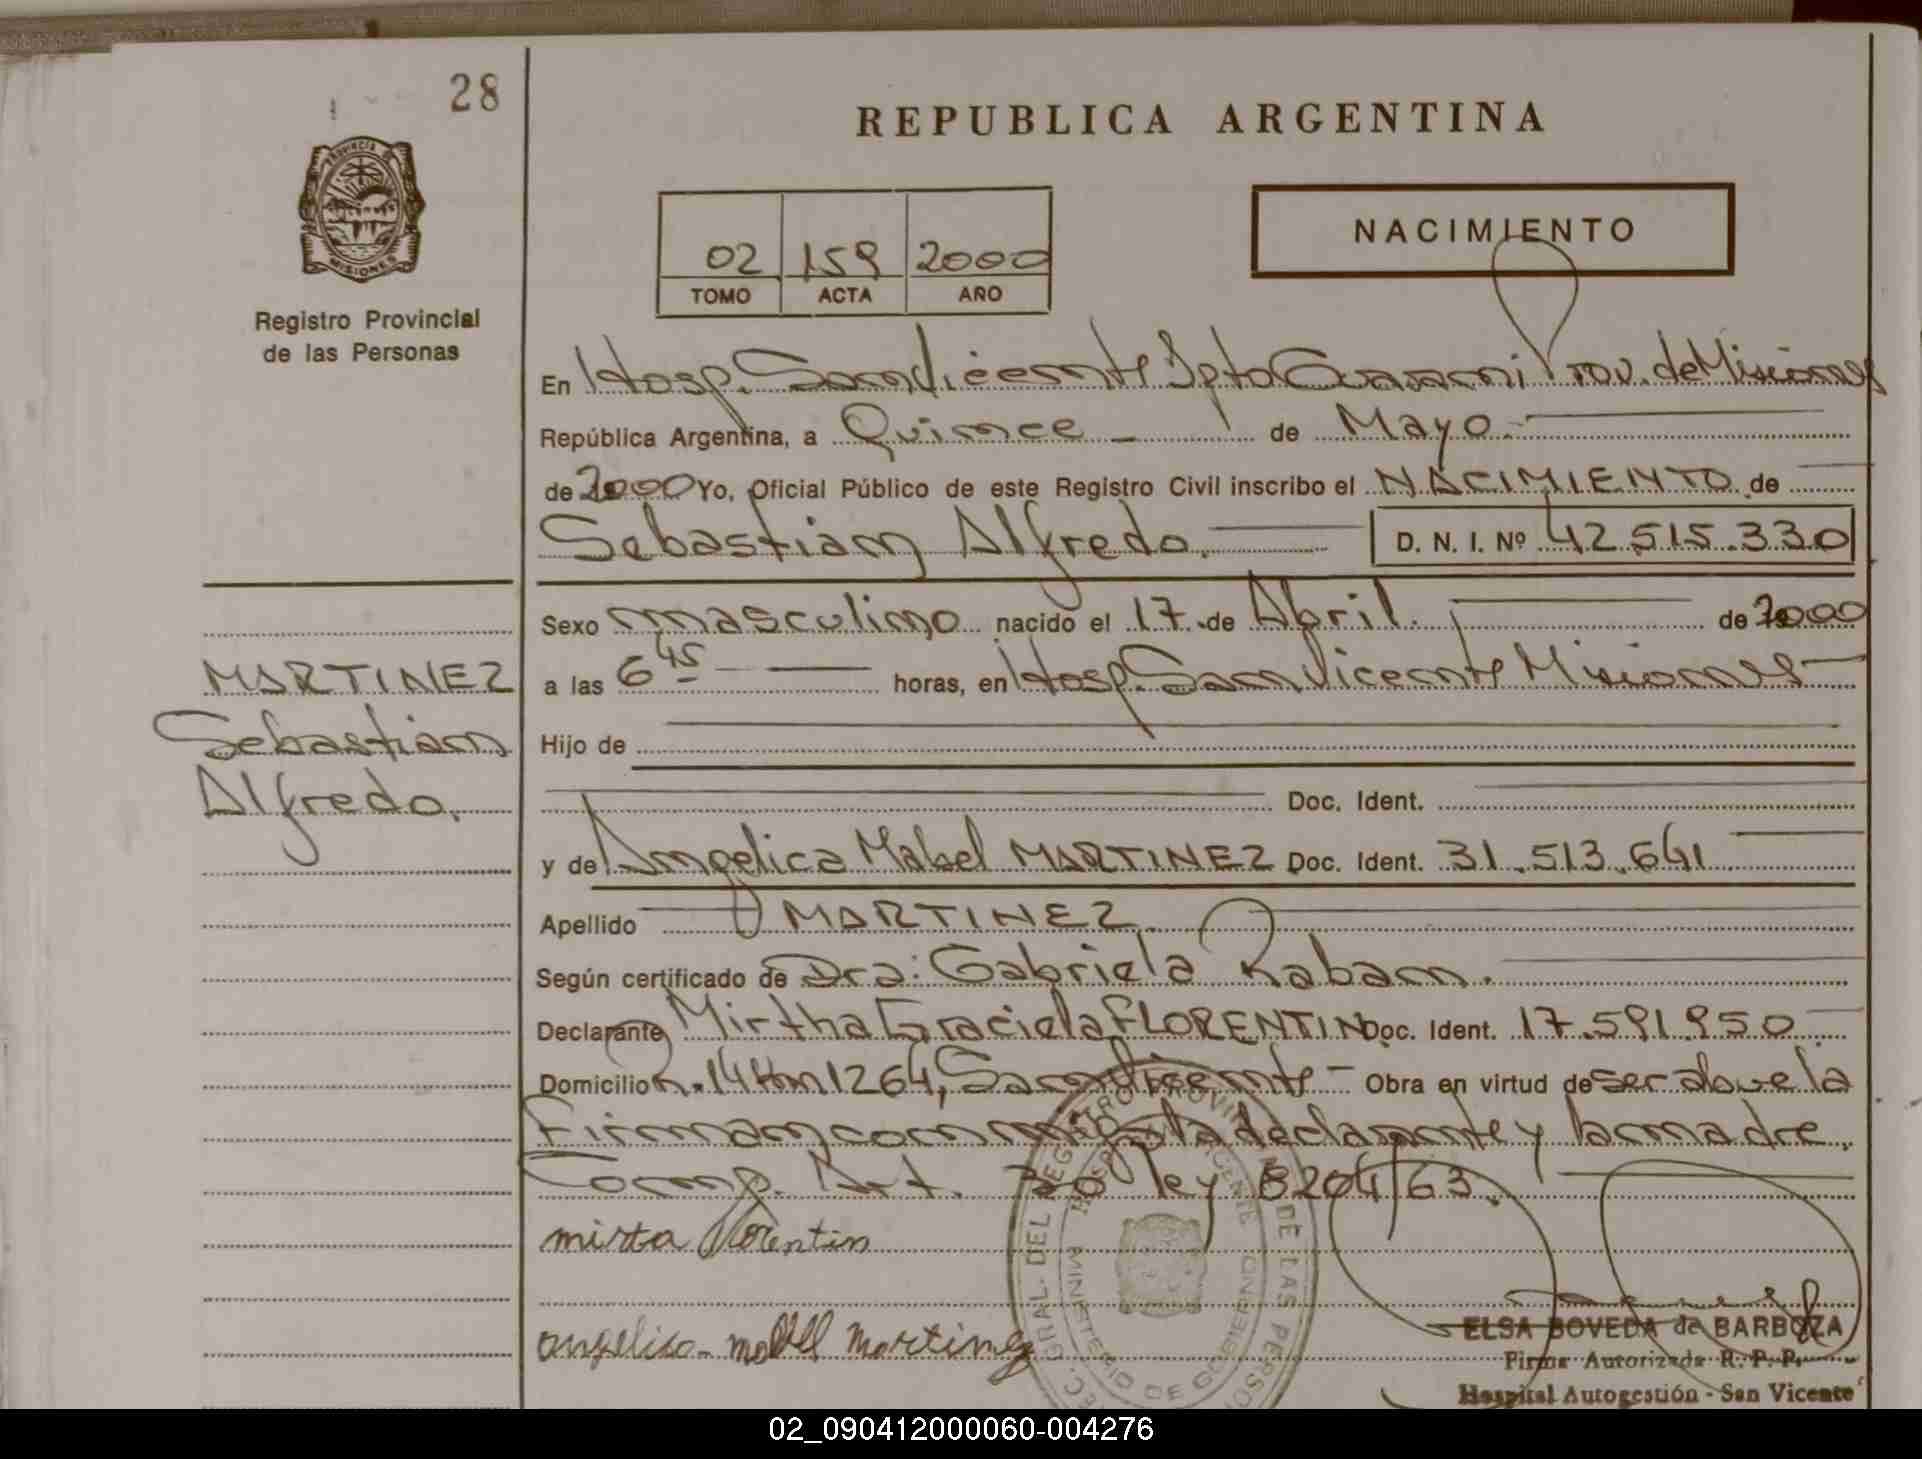 28
REPUBLICA ARGENTINA
PROVINCIA DE
MISIONES
Registro Provincial
de las Personas
02 159 2000
TOMO ACTA AÑO
NACIMIENTO
En Hosp. San Vicente Dpto Guarani Prov. de Misiones
República Argentina, a Quince de Mayo
de 2000 Yo, Oficial Público de este Registro Civil inscribo el NACIMIENTO de
Sebastian Alfredo. D. N. I. Nº 42.515.330
Sexo masculino nacido el 17 de Abril. de 2000
a las 6 45 horas, en Hosp. San Vicente Misiones
Hijo de
Doc. Ident.
y de Angelica Mabel MARTINEZ Doc. Ident. 31.513.641
Apellido MARTINEZ
Según certificado de Dra: Gabriela Raban.
Declarante Mirtha Graciela FLORENTIN Doc. Ident. 17.591.950
Domicilio R. 14 Km 1264, San Vicente - Obra en virtud de ser abuela
Firman conmigo la declarante y la madre.
Comp. Art. 30 ley 8204/63.
MARTINEZ
Sebastian
Alfredo.
mirta Florentin
angelica mabel Martinez
GRAL. DEL REGISTRO PROVINCIAL DE LAS PERSO
HOSP. SAN VICENTE
MINISTERIO DE GOBIERNO
ELSA BOVEDA de BARBOZA
Firma Autorizada R. P. P.
Hospital Autogestión - San Vicente
02_090412000060-004276